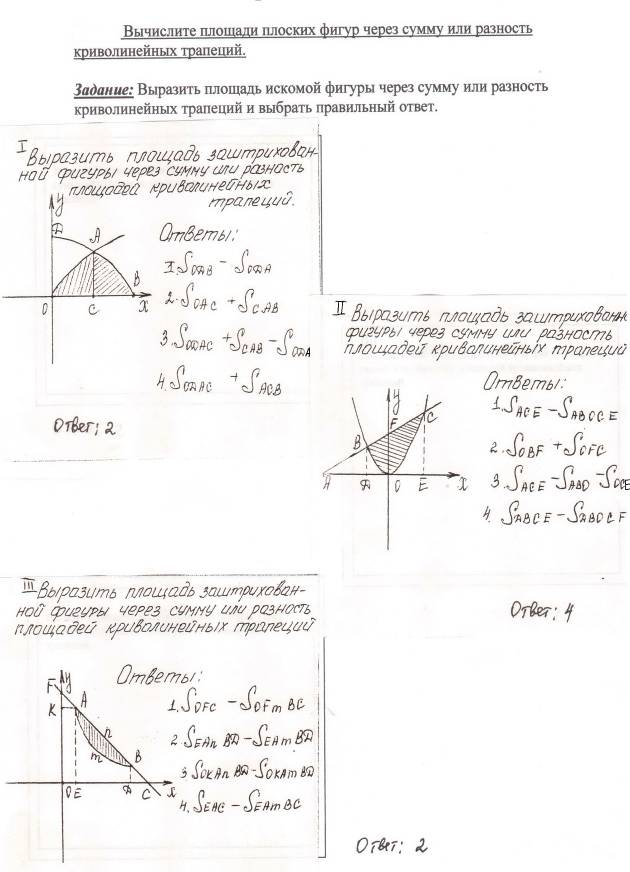 Вычислите площади плоских фигур через сумму или разность
криволинейных трапеций.
Задание: Выразить площадь искомой фигуры через сумму или разность
криволинейных трапеций и выбрать правильный ответ.
I Выразить площадь заштрихован-
ной фигуры через сумму или разность
площадей криволинейных
трапеций.
y
D
A
B
O
C
x
Ответы:
1. SODAB - SODA
2. SOAC + SCAB
3. SODAC + SCAB - SODA
4. SODAC + SACB
Ответ: 2
II Выразить площадь заштрихованн
фигуры через сумму или разность
площадей криволинейных трапеций
y
F
C
B
A
D
O
E
x
Ответы:
1. SACE - SABOCE
2. SOBF + SOFC
3. SACE - SABO - SOCE
4. SDBCE - SDBOCE
Ответ: 4
III Выразить площадь заштрихован-
ной фигуры через сумму или разность
площадей криволинейных трапеций
F
y
K
A
n
m
B
O
E
D
C
x
Ответы:
1. SOFC - SOFmBC
2. SEAnBD - SEAmBD
3. SOKAnBD - SOKAmBD
4. SEAC - SEAmBC
Ответ: 2